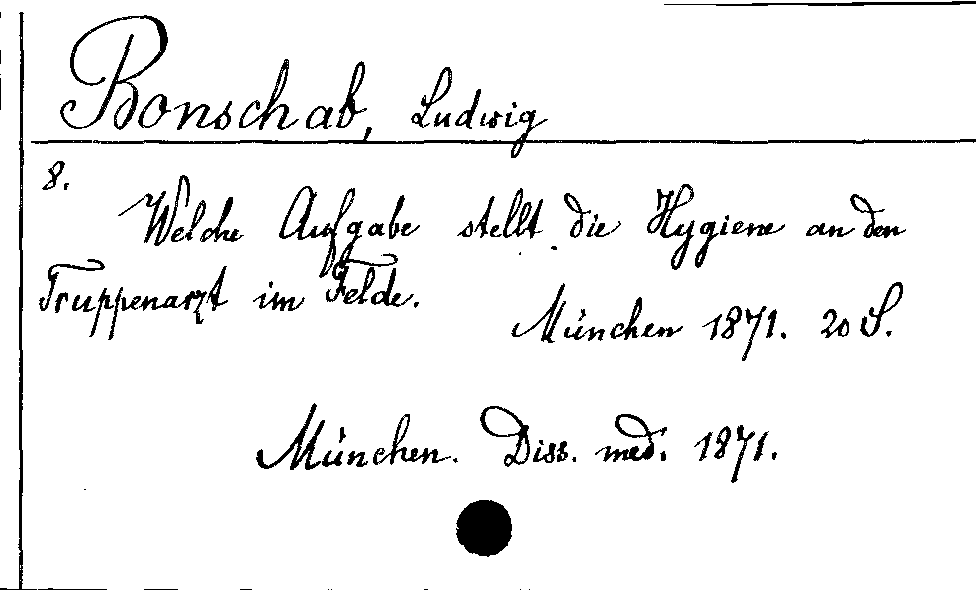 Bonschab, Ludwig
8.
Welche Aufgabe stellt die Hygiene an den
Truppenarzt im Felde.
München 1871. 20 S.
München. Diss. med. 1871.